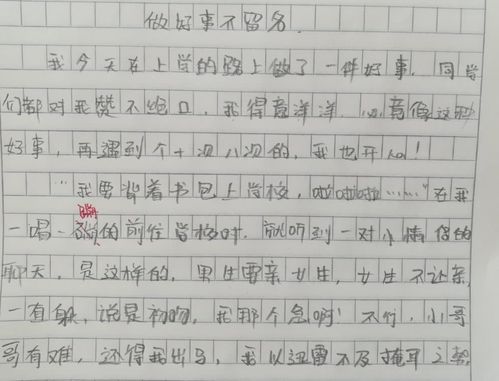 做好事不留名
我今天在上学的路上做了一件好事，同学
们都对我赞不绝口，我得意洋洋，心竟像这种
好事，再遇到个十次八次的，我也开心！
"我要背着书包上学校，啦啦啦啦……"在我
一唱一的前往学校时，就听到一对小情侣的
聊天，是这样的，男生要亲女生，女生不让亲，
一直躲，说是初吻，我那个急啊！不行，小哥
哥有难，还得我出马，我以迅雷不及掩耳之势